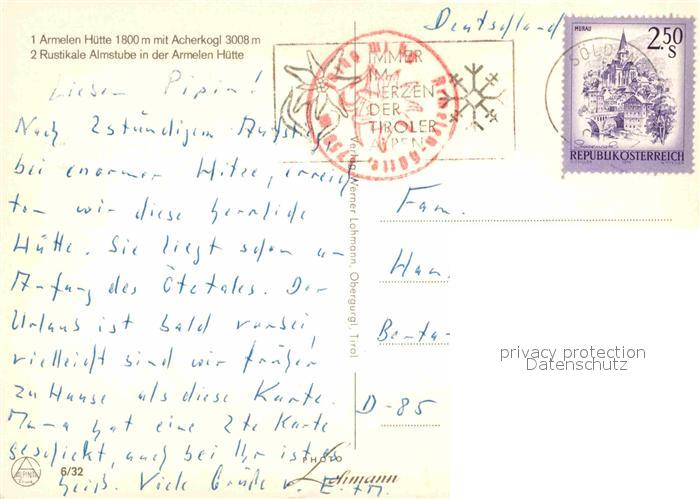 1 Armelen Hütte 1800 m mit Acherkogl 3008 m
2 Rustikale Almstube in der Armelen Hütte
Deutschland
MURAU
2.50 S
REPUBLIK ÖSTERREICH
SÖLD
IMMER
IM
HERZEN
DER
TIROLER
ALPEN
Armelen-Hütte
Lieber Pipin!
Nach 2stündigem Aufstieg,
bei enormer Hitze, erreich
ten wir diese herrliche
Hütte. Sie liegt schon am
Anfang des Ötztales. Der
Urlaub ist bald vorbei,
vielleicht sind wir früher
zu Hause als diese Karte.
Mama hat eine 2te Karte
geschickt, auch bei Ihr ist es
heiß. Viele Grüße v. E. + M.
Verlag Werner Lohmann, Obergurgl, Tirol
Fam.
Han
Berta-
D-85
privacy protection
Datenschutz
ALPINA
6/32
PHOTO
Lohmann